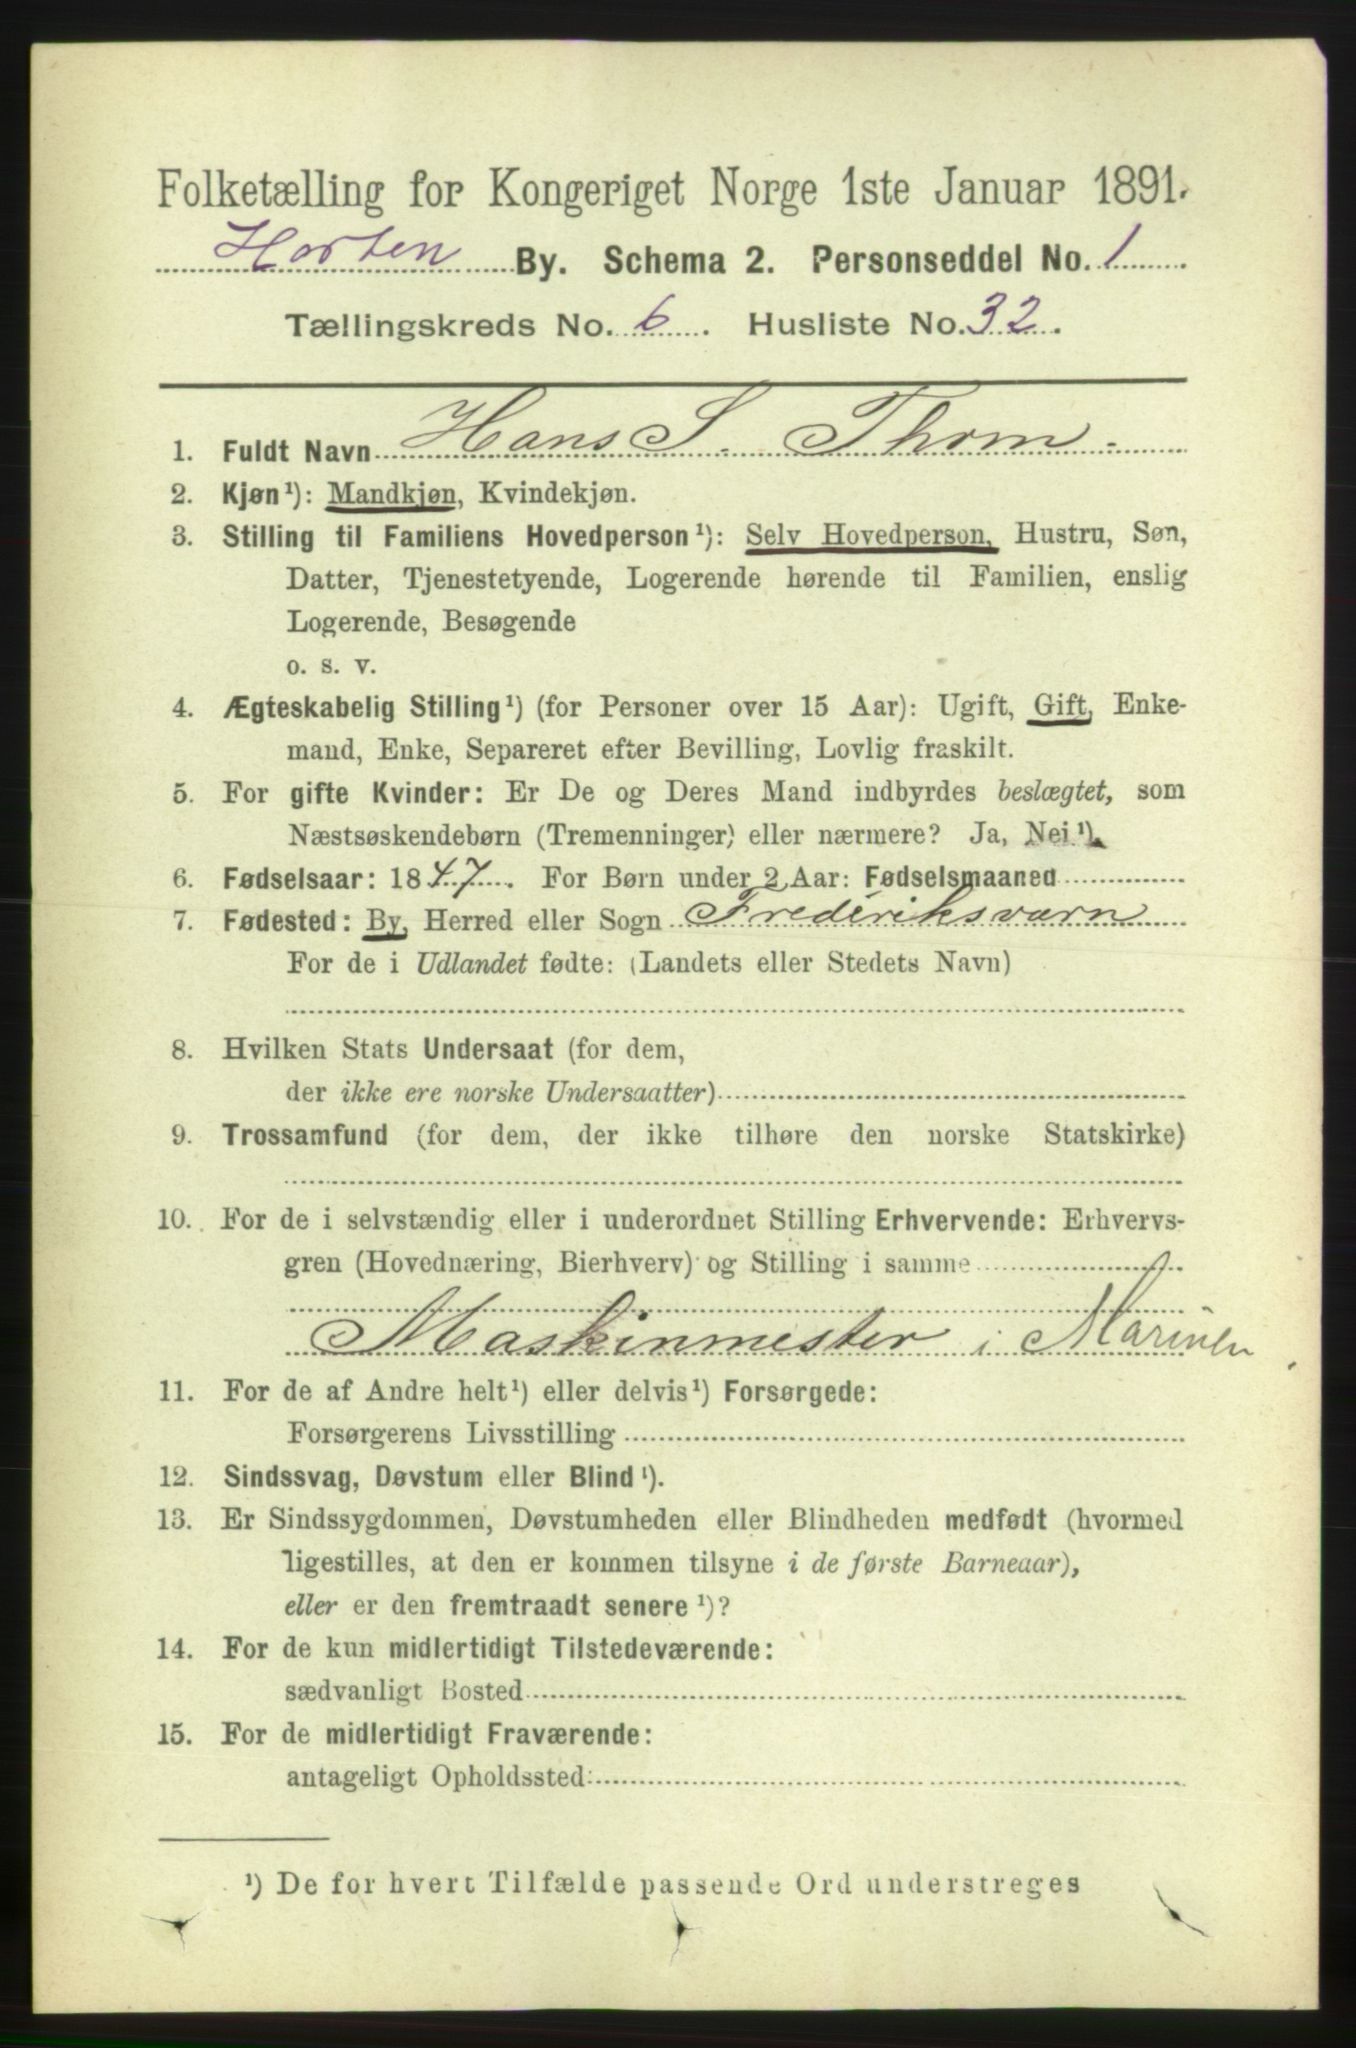 Folketælling for Kongeriget Norge 1ste Januar 1891.
Horten By. Schema 2. Personseddel No. 1
Tællingskreds No. 6. Husliste No. 32.
1. Fuldt Navn Hans S. Thom
2. Kjøn¹): Mandkjøn, Kvindekjøn.
3. Stilling til Familiens Hovedperson¹): Selv Hovedperson, Hustru, Søn,
Datter, Tjenestetyende, Logerende hørende til Familien, enslig
Logerende, Besøgende
o. s. v.
4. Ægteskabelig Stilling¹) (for Personer over 15 Aar): Ugift, Gift, Enke-
mand, Enke, Separeret efter Bevilling, Lovlig fraskilt.
5. For gifte Kvinder: Er De og Deres Mand indbyrdes beslægtet, som
Næstsøskendebørn (Tremenninger) eller nærmere? Ja, Nei¹).
6. Fødselsaar: 1847. For Børn under 2 Aar: Fødselsmaaned
7. Fødested: By, Herred eller Sogn Frederiksværn
For de i Udlandet fødte: (Landets eller Stedets Navn)
8. Hvilken Stats Undersaat (for dem,
der ikke ere norske Undersaatter)
9. Trossamfund (for dem, der ikke tilhøre den norske Statskirke)
10. For de i selvstændig eller i underordnet Stilling Erhvervende: Erhvervs-
gren (Hovednæring, Bierhverv) og Stilling i samme
Maskinmester i Marinen
11. For de af Andre helt¹) eller delvis¹) Forsørgede:
Forsørgerens Livsstilling
12. Sindssvag, Døvstum eller Blind¹).
13. Er Sindssygdommen, Døvstumheden eller Blindheden medfødt (hvormed
ligestilles, at den er kommen tilsyne i de første Barneaar),
eller er den fremtraadt senere¹)?
14. For de kun midlertidigt Tilstedeværende:
sædvanligt Bosted
15. For de midlertidigt Fraværende:
antageligt Opholdssted:
¹) De for hvert Tilfælde passende Ord understreges